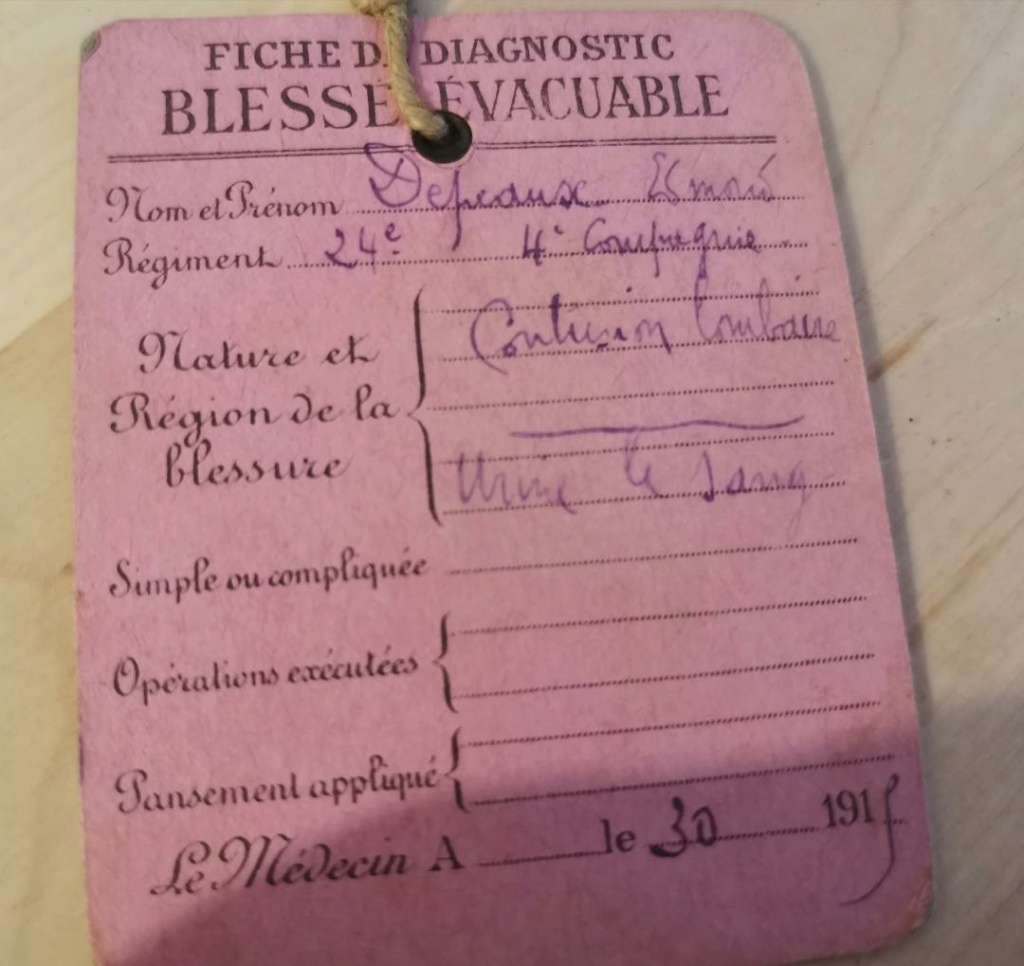 FICHE DE DIAGNOSTIC
BLESSÉ ÉVACUABLE
Nom et Prénom Depeaux
Régiment 24e 4e Compagnie
Contusion lombaire
Nature et
Région de la
blessure
Urine le sang
Simple ou compliquée
Opérations exécutées
Pansement appliqué
Le Médecin A le 30 1915